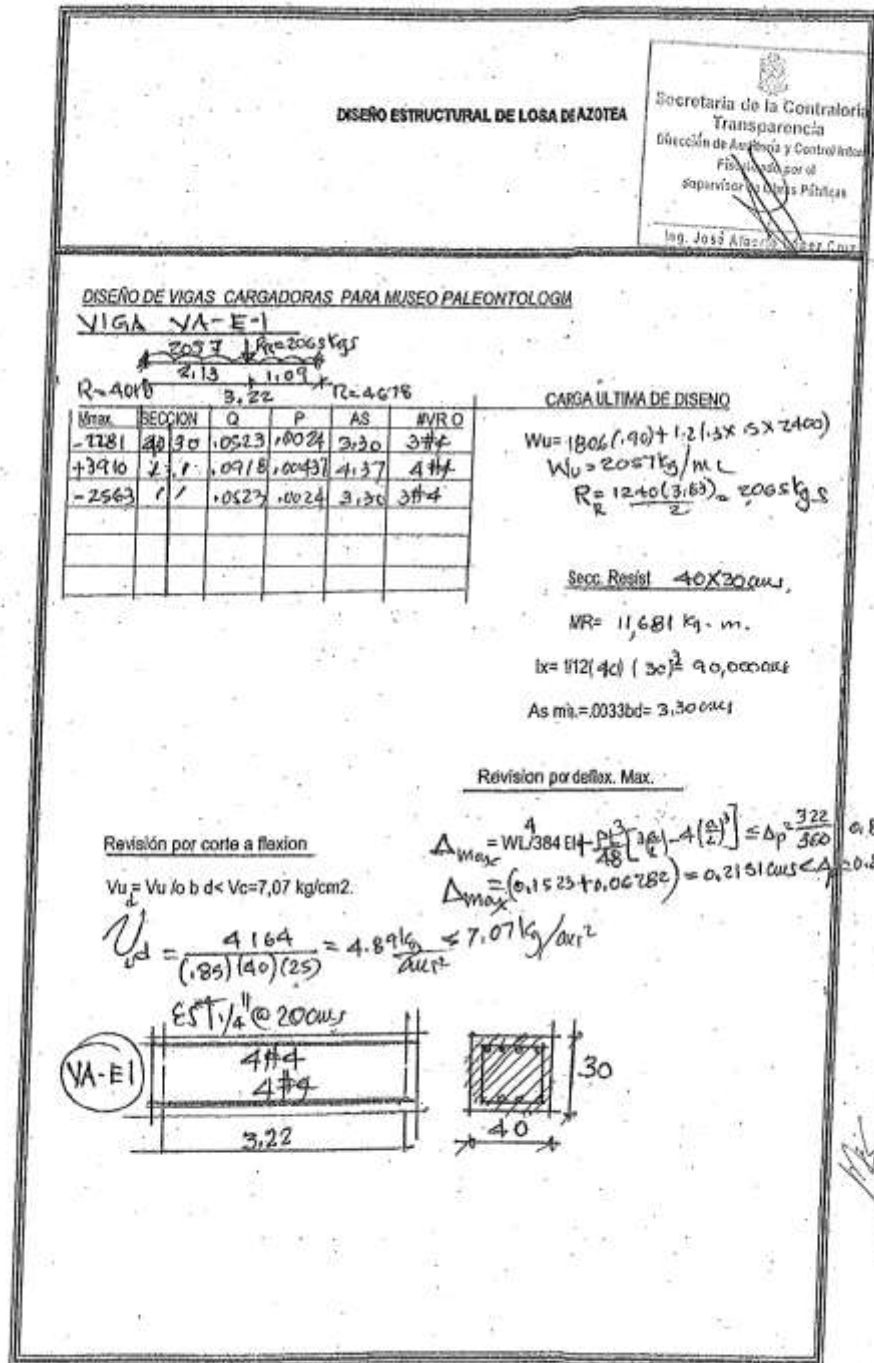 DISEÑO ESTRUCTURAL DE LOSA DE AZOTEA
Secretaria de la Contraloria
Transparencia
Dirección de Auditoría y Control
Fiscalizado por el
Supervisor de Obras Públicas
Ing. José
DISEÑO DE VIGAS CARGADORAS PARA MUSEO PALEONTOLOGIA
VIGA VA-E-1
2057 PR=2065kgs
2.13 1.09
R=4018 3.22 R=4678
Mmax. SECCION Q P AS #VR O
-2281 40 30 .0523 .0024 3.30 3#4
+3910 " " .0918 .00437 4.37 4#4
-2563 " " .0523 .0024 3.30 3#4
CARGA ULTIMA DE DISENO
Wu= 1806(.90)+1.2(.3x.5x2400)
Wu=2057kg/mL
R= 1240(3.33)/2 = 2065kgs
Secc. Resist 40X30cms.
MR= 11,681 kg-m.
Ix= 1/12(40)(30)³= 90,000cms
As min.=.0033bd= 3.30cms
Revision por deflex. Max.
Δmax = WL⁴/384 EI+PL³/48[3a/L-4(a/L)³] ≤ Δp=322/360 0.8
Δmax=(0.1523+0.06282)=0.2151cms<Δp=0.8
Revisión por corte a flexion
Vu= Vu /o b d< Vc=7,07 kg/cm2.
d
Vud = 4164/(.85)(40)(25) = 4.89kg/cm² ≤ 7.07kg/cm²
EST 1/4"@20cms
VA-E1
4#4
4#4
3.22
.30
40